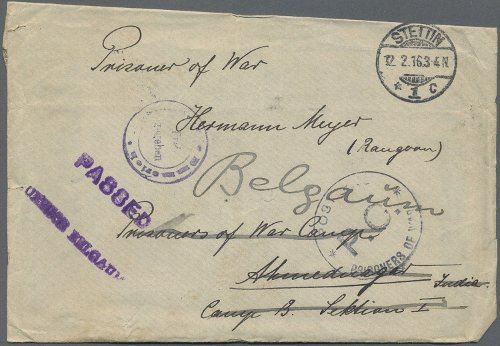 STETTIN
12.2.16.3-4N
* 1 c
Prisoner of War
Hermann Meyer
(Rangoon)
Belgaum
PASSED
Prisoners of War Camp
P.C.
PRISONERS OF WAR
Ahmednagar
India
Camp B. Sektion I